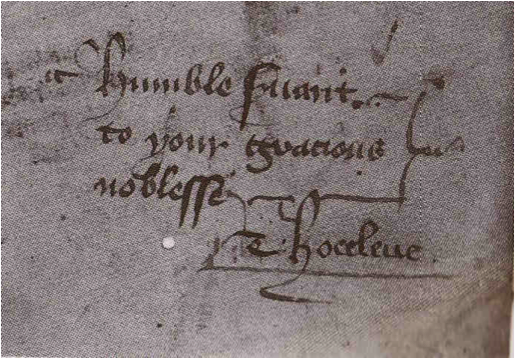 Humble suant
to your gracious
noblesse
T. Hoccleue